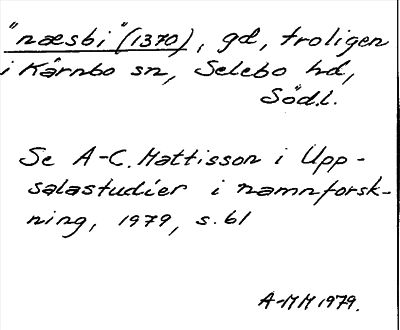 "næsbi" (1370), gd, troligen
i Kärnbo sn, Selebo hd,
Södl.
Se A-C. Mattisson i Upp-
salastudier i namnforsk-
ning, 1979, s. 61
A-MM 1979.